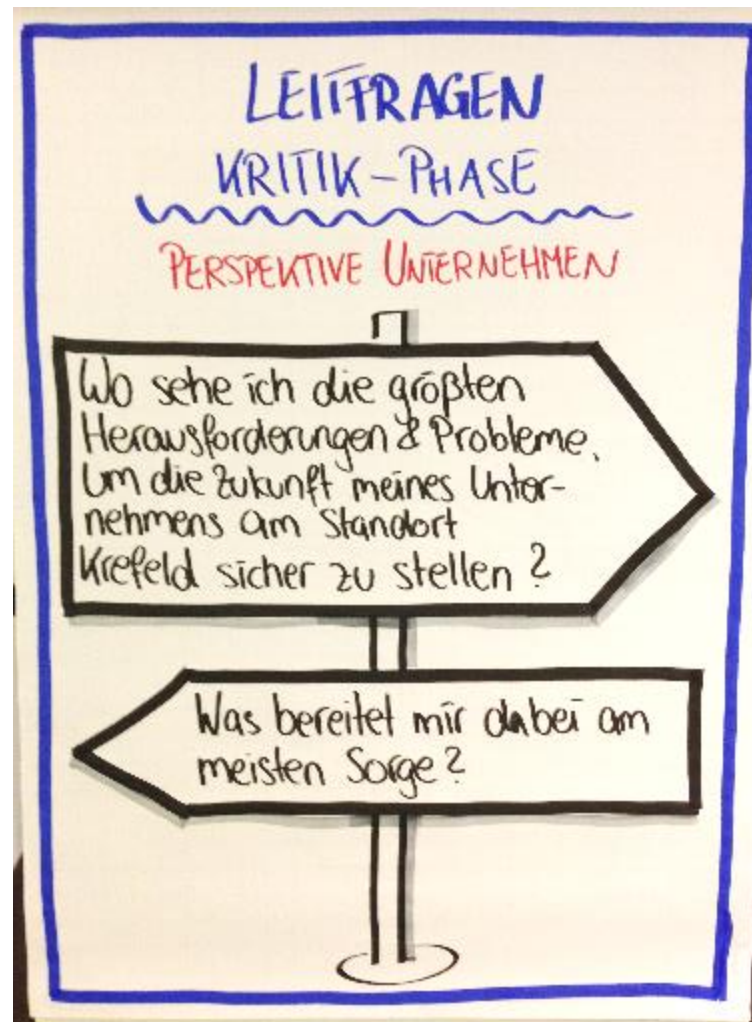 LEITFRAGEN
KRITIK-PHASE
PERSPEKTIVE UNTERNEHMEN
Wo sehe ich die größten
Herausforderungen & Probleme,
um die Zukunft meines Unter-
nehmens am Standort
Krefeld sicher zu stellen?
Was bereitet mir dabei am
meisten Sorge?